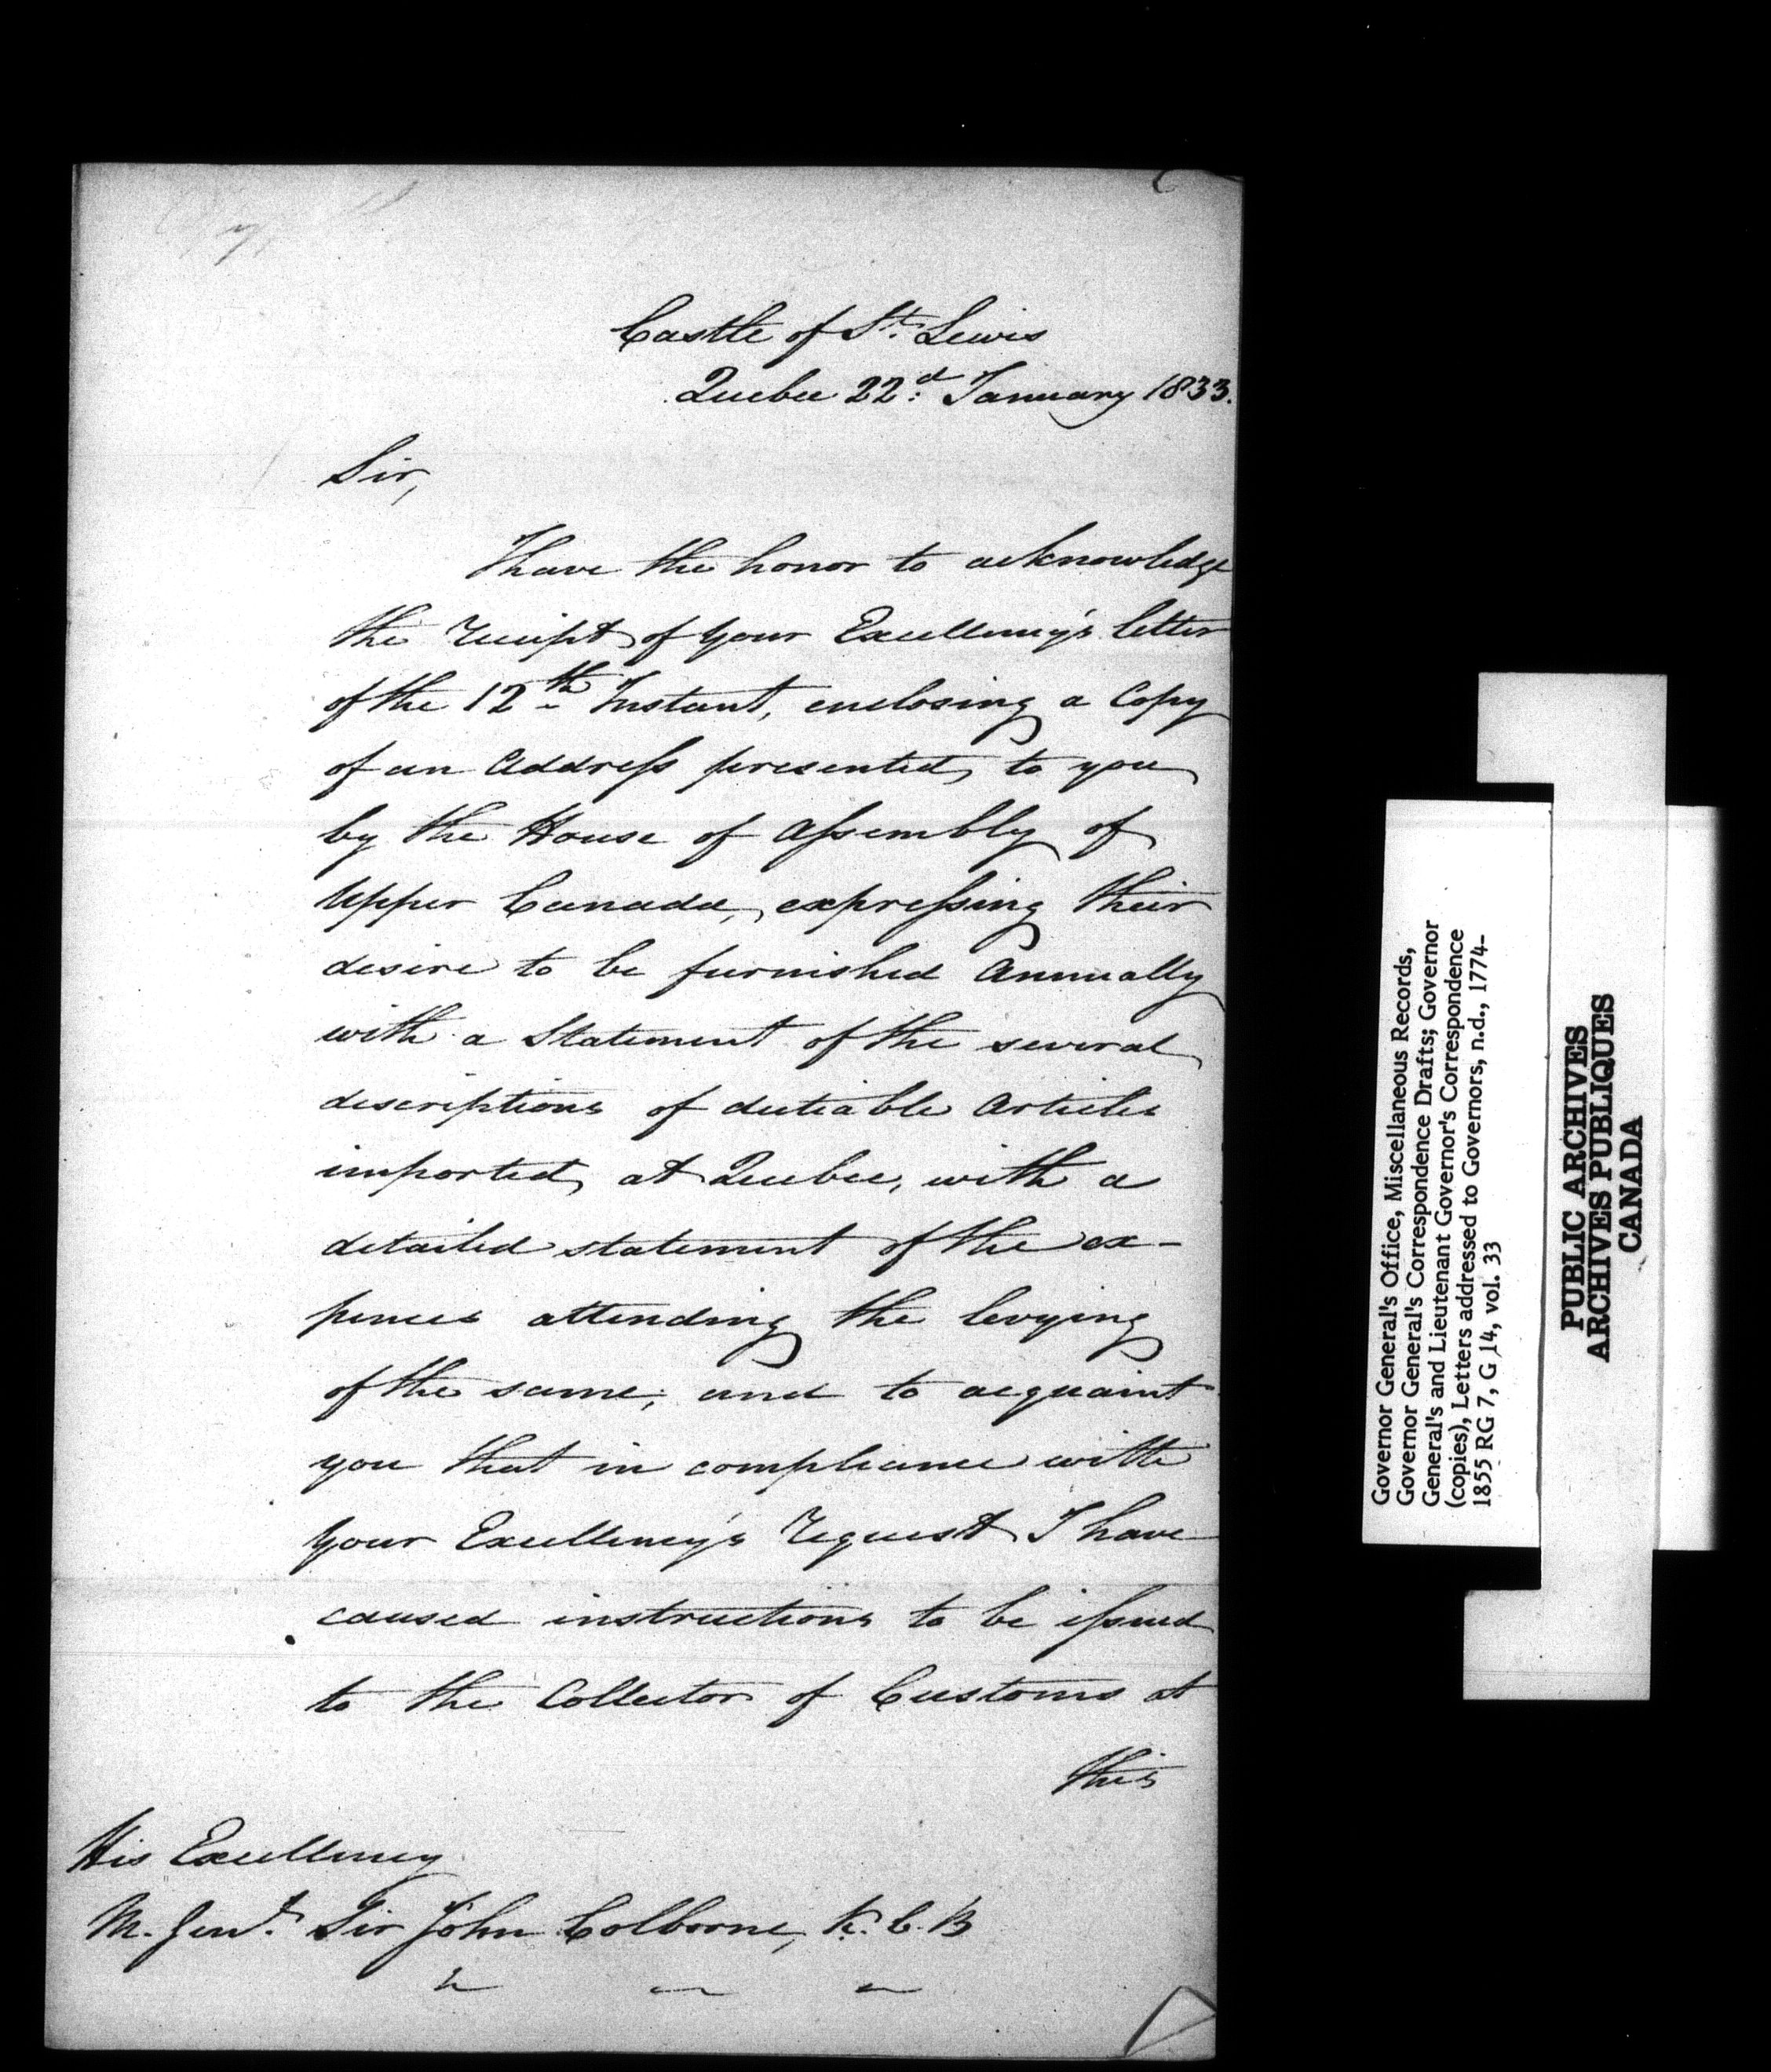 Castle of St. Lewis
Quebec 22d: January 1833.
Sir,
I have the honor to acknowledge
the receipt of your Excellency's letter
of the 12th Instant, enclosing a Copy
of an Address presented to you
by the House of Assembly of
Upper Canada, expressing their
desire to be furnished Annually
with a Statement of the several
descriptions of dutiable Articles
imported at Quebec, with a
detailed statement of the ex-
pences attending the levying
of the same; and to acquaint
you that in compliance with
your Excellency's request I have
caused instructions to be issued
to the Collector of Customs at
this
His Excellency
M. Genl. Sir John Colborne, K.C.B
Governor General's Office, Miscellaneous Records,
Governor General's Correspondence Drafts; Governor
General's and Lieutenant Governor's Correspondence
(copies), Letters addressed to Governors, n.d., 1774-
1855 RG 7, G 14, vol. 33
PUBLIC ARCHIVES
ARCHIVES PUBLIQUES
CANADA